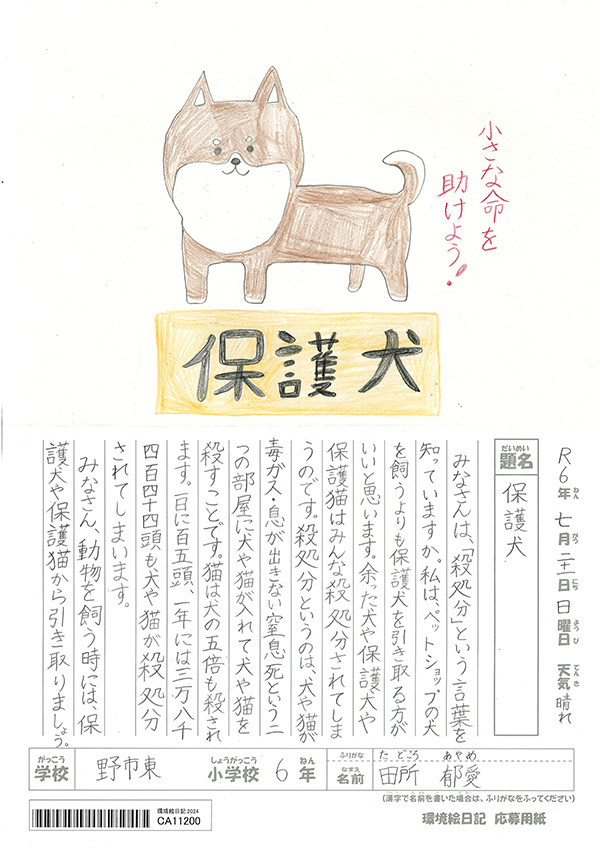 小さな命を
助けよう!
保護犬
R6年 七月 二十一日 日曜日 天気 晴れ
ねん がつ にち ようび てんき
だいめい
題名 保護犬
みなさんは、「殺処分」という言葉を
知っていますか。私は、ペットショップの犬
を飼うよりも保護犬を引き取る方が
いいと思います。余った犬や保護犬や
保護猫はみんな殺処分されてしま
うのです。殺処分というのは、犬や猫が
毒ガス・息が出きない窒息死という二
つの部屋に犬や猫が入れて犬や猫を
殺すことです。猫は犬の五倍も殺され
ます。一日に百五頭、一年には三万八千
四百四十四頭も犬や猫が殺処分
されてしまいます。
みなさん、動物を飼う時には、保
護犬や保護猫から引き取りましょう。
がっこう しょうがっこう ねん ふりがな たどころ あやめ
学校 野市東 小学校 6年 なまえ 名前 田所 郁愛
(漢字で名前を書いた場合は、ふりがなをふってください)
環境絵日記2024
CA11200
環境絵日記 応募用紙